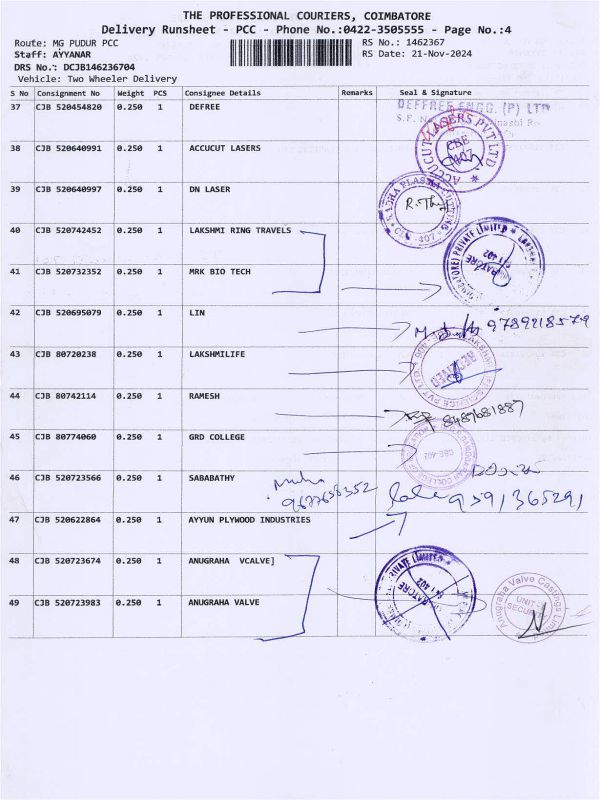 THE PROFESSIONAL COURIERS, COIMBATORE
Delivery Runsheet - PCC - Phone No.:0422-3505555 - Page No.:4
Route: MG PUDUR PCC
RS No.: 1462367
Staff: AYYANAR
RS Date: 21-Nov-2024
DRS No.: DCJB146236704
Vehicle: Two Wheeler Delivery
S No Consignment No Weight PCS Consignee Details Remarks Seal & Signature
37 CJB 520454820 0.250 1 DEFREE
DEFFREE ENGG. (P) LTD
S.F. No
38 CJB 520640991 0.250 1 ACCUCUT LASERS
ACCUCUT LASERS PVT LTD
CBE
407
39 CJB 520640997 0.250 1 DN LASER
PLASMA CUTTING
407
40 CJB 520742452 0.250 1 LAKSHMI RING TRAVELS
PRIVATE LIMITED
641 402
41 CJB 520732352 0.250 1 MRK BIO TECH
42 CJB 520695079 0.250 1 LIN
9789218579
43 CJB 80720238 0.250 1 LAKSHMILIFE
RECEIVED
44 CJB 80742114 0.250 1 RAMESH
8489681887
45 CJB 80774060 0.250 1 GRD COLLEGE
46 CJB 520723566 0.250 1 SABABATHY
9677658352
9591365291
47 CJB 520622864 0.250 1 AYYUN PLYWOOD INDUSTRIES
48 CJB 520723674 0.250 1 ANUGRAHA VCALVE]
PRIVATE LIMITED
641 402
49 CJB 520723983 0.250 1 ANUGRAHA VALVE
Anugraha Valve Castings Limited
UNIT
SECURITY